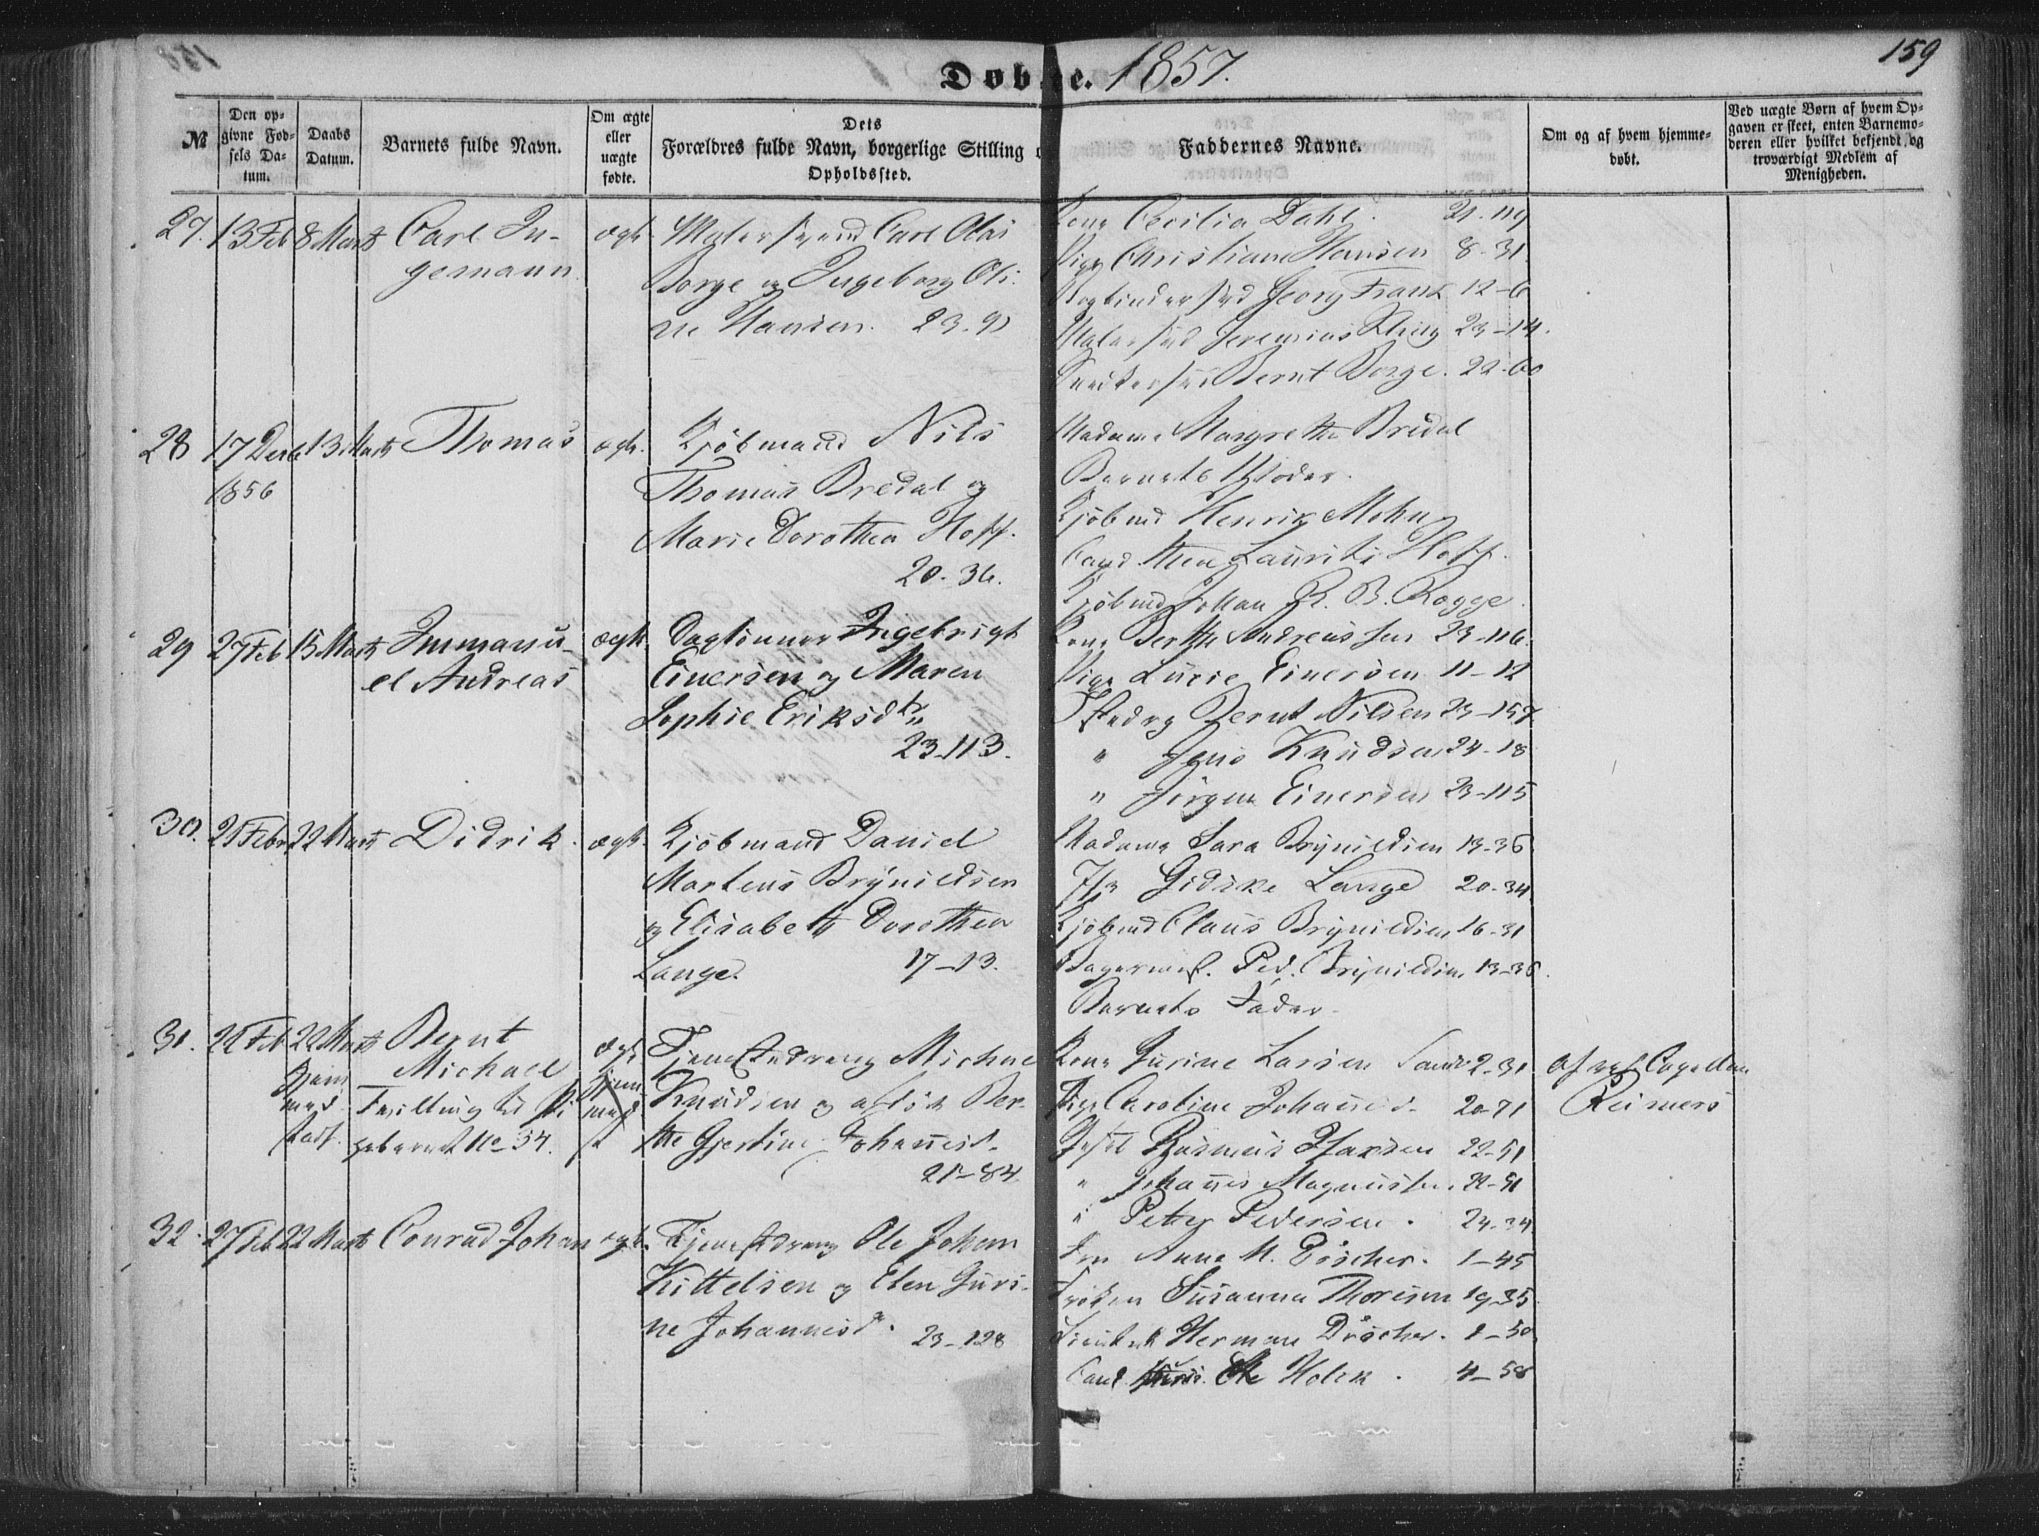 Døbte. 1857.
159
№
Den opgivne Fødsels Datum.
Daabs Datum.
Barnets fulde Navn.
Om ægte eller uægte fødte.
Dets Forældres fulde Navn, borgerlige Stilling Opholdssted.
Faddernes Navne.
Om og af hvem hjemmedøbt.
Ved uægte Børn af hvem Opgaven er skeet, enten Barnemoderen eller hvilket bekjendt og troværdigt Medlem af Menigheden.
27. 13 Feb 8 Marts Carl In-
gemann
ægte
Malersvend Carl Olai
Borge og Ingeborg Oli-
ne Hansen. 23-91
Kone Cecilia Dahl. 21-119
Pige Christiane Hansen 8-31
Bogbindersvd Georg Frank 12-6
Malersvd Jeremias 23-14.
Snedkersvd Bernt Borge. 22-60
28 17 Decb 13 Marts Thomas
1856
ægte.
Kjøbmand Nils
Thomas Bredal og
Marie Dorothea Hoff.
20-36.
Madame Margrethe Bredal
Barnets Moder.
Kjøbmd Henrik Mohn
Cand. theol Lauritz Hoff.
Kjøbmd Johan R. B. Rogge.
29 27 Feb 15 Marts Immanu-
el Andreas
ægte.
Daglønner Ingebrigt
Einersen og Maren
Sophie Eriksdtr
23-113.
Kone Berthe Andreassen 23-116.
Pige Lucie Einersen 11-12
Bernt Nilsen 23-157
" Jens Knudsen 24-18
" Jørgen Einersen 23-115
30. 21 Febr 22 Marts Didrik.
ægte.
Kjøbmand Daniel
Martens Brynildsen
og Elisabeth Dorothea
Lange. 17-13.
Madame Sara Brynildsen 13-36
Jfr Gidske Lange 20-34
Kjøbmd Claus Brynildsen 16-31
Bagermest. Ped. Brynildsen 13-36.
Barnets Fader.
31. 22 Feb 22 Marts Bernt
Michael
Tvilling til Pi-
gebarnet No 34.
ægte
Tjenestedreng Michael
Knudsen og Ber-
the Gjertine Johannesd.
21-84
Kone Gurine Larsen Sand 2-31
Pige Caroline Johannesd. 20-71
Rasmus Hansen 22-51
" Johannes Magnussen. 22-51
" Peter Pedersen. 24-34
af Capellan
Reimers
32. 27 Feb 22 Marts Conrad Johan
ægte.
Tjenestedreng Ole Johan
Kittelsen og Elen Guri-
ne Johannesd. 23-128
Fru Anne M. Døscher. 1-45
Frøken Susanna Thoresen 19-35
Herman Døscher. 1-50
Cand. Ole Holck. 4-58